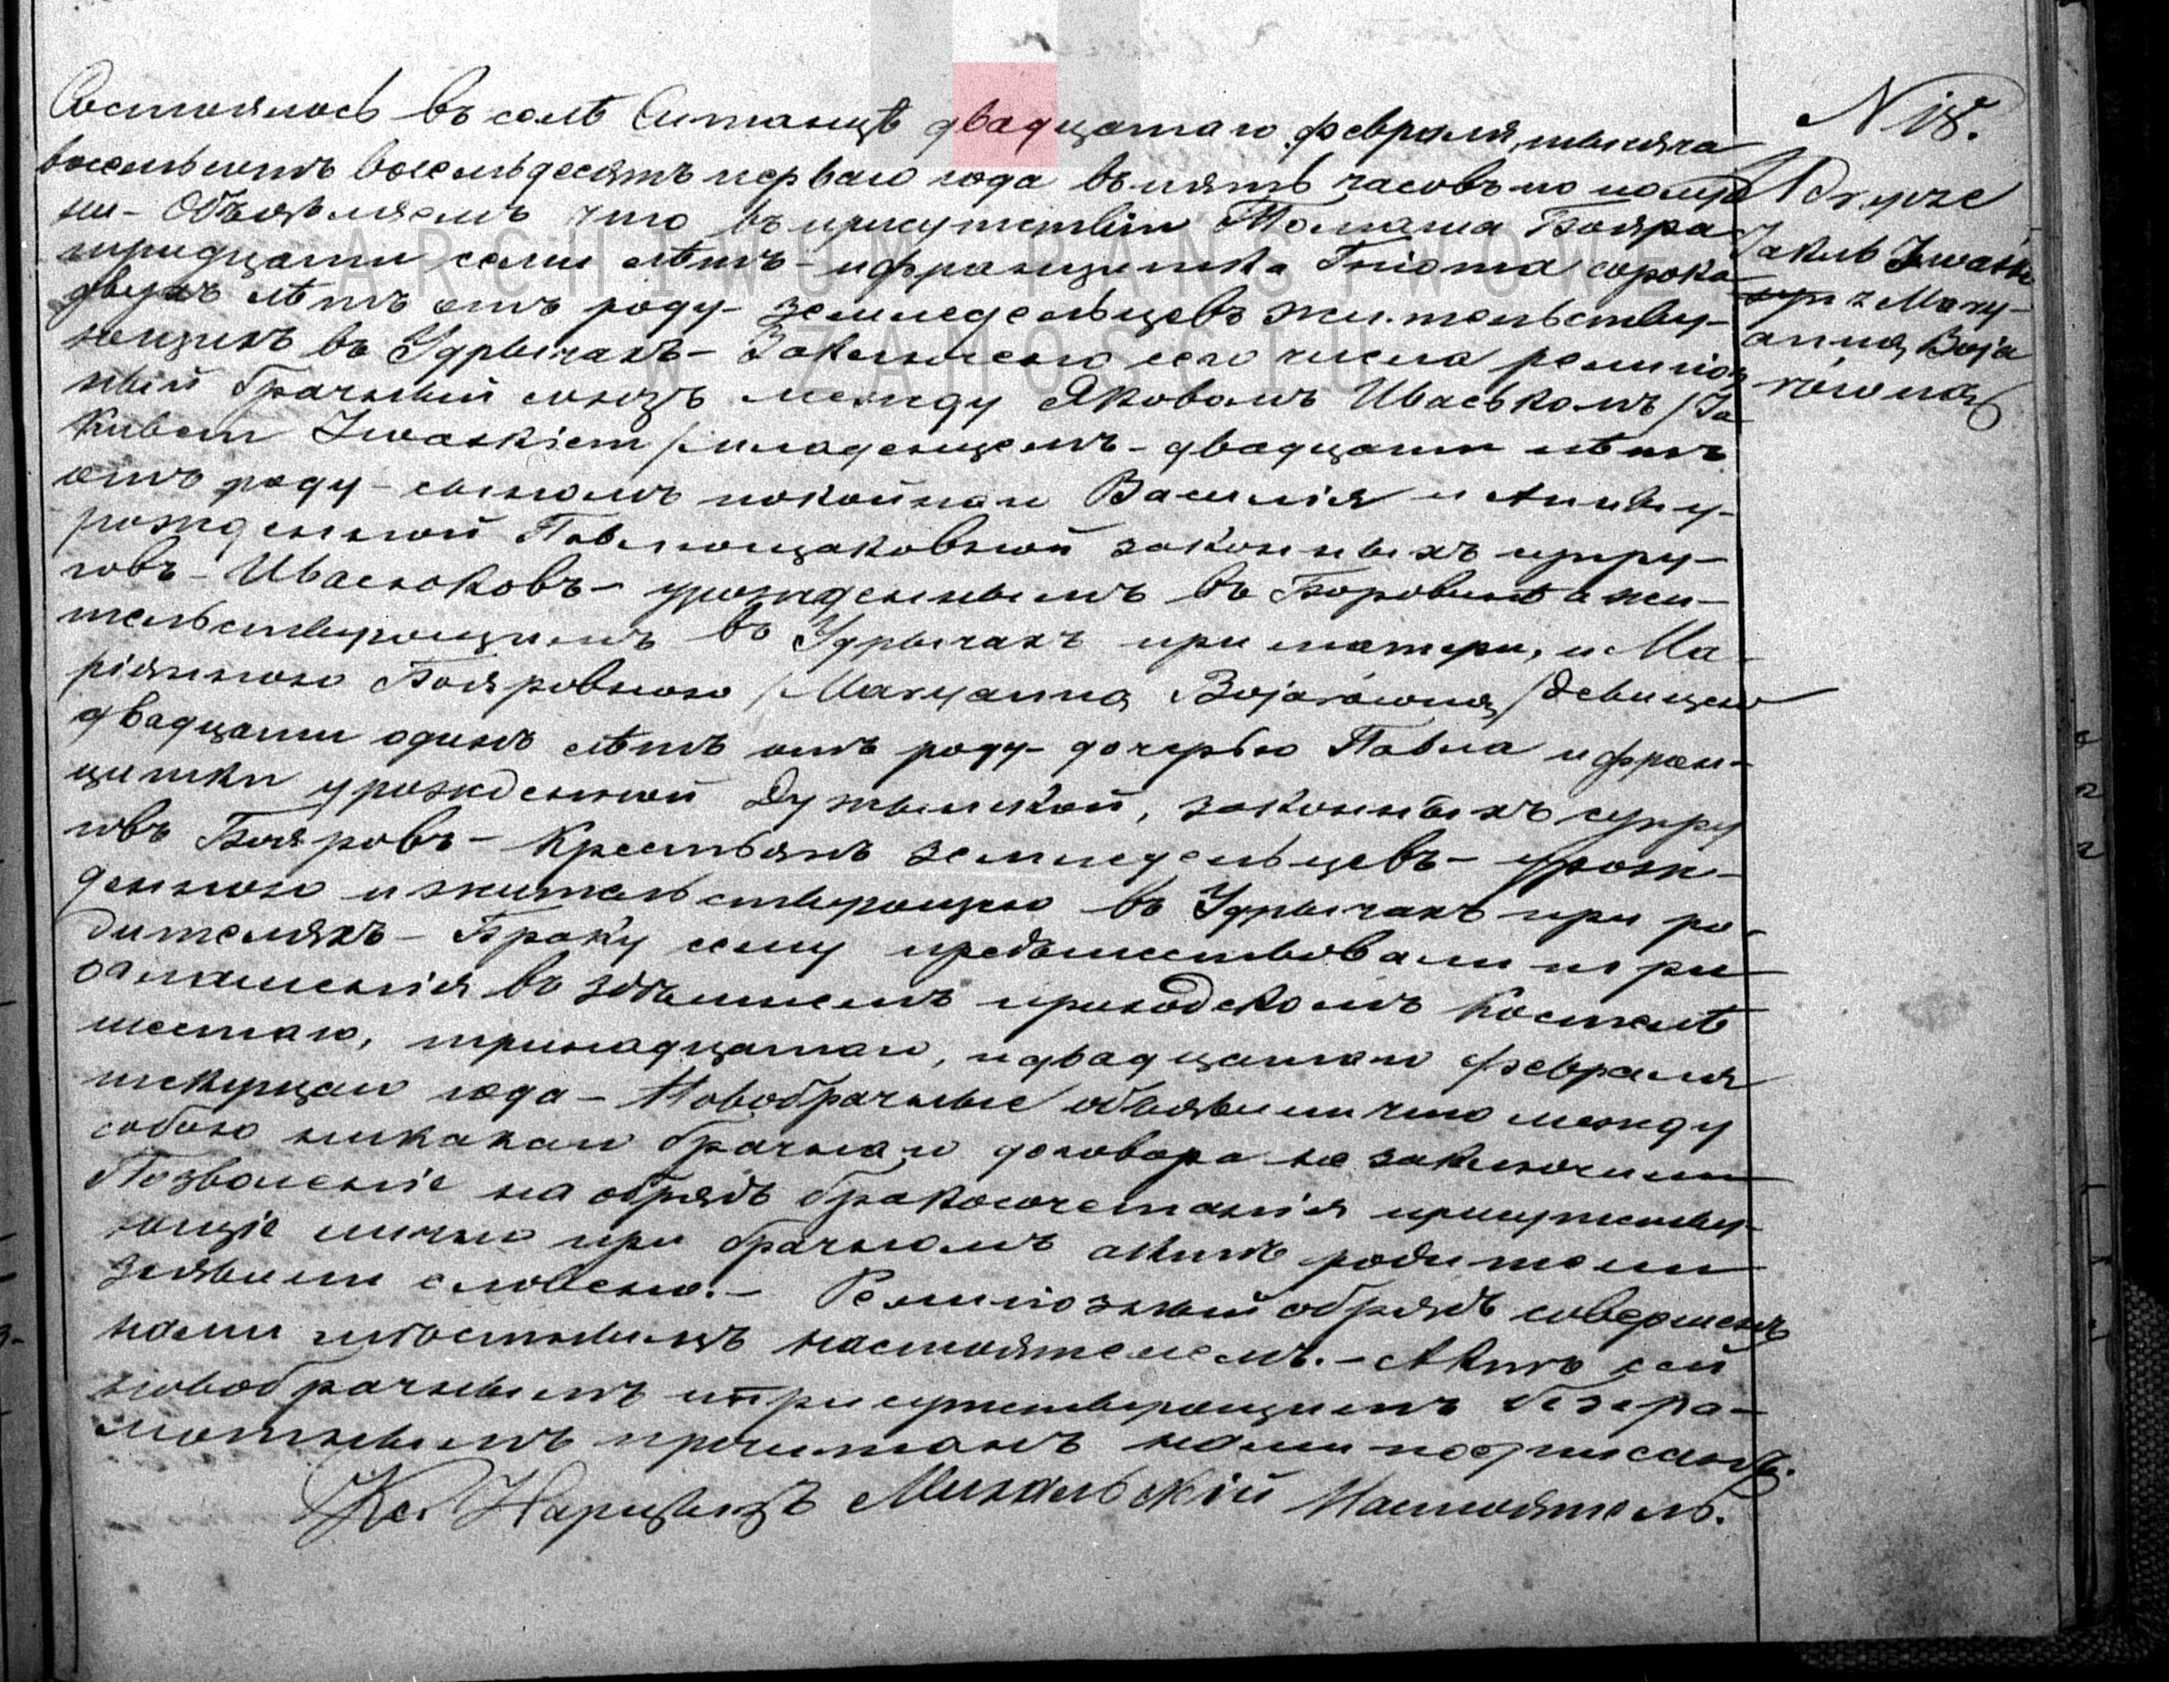 Состоялось въ селѣ Ситанцѣ двадцатаго февраля, тысяча
восемьсотъ восемьдесятъ перваго года въ пять часовъ по полуд
ни - Объявляемъ что въ присутствіи Томаша Бояра
тридцати семи лѣтъ - и Францишка сорока
двухъ лѣтъ отъ роду - земледельцевъ жительству-
ющихъ въ Удрычахъ - Заключено сего числа религіоз
ный брачный союзъ между Яковомъ Иваськомъ /Ja
kubem Iwaskiem/ младенцемъ - двадцати лѣтъ
отъ роду - сыномъ покойнаго Василія и Анны у-
рожденной законныхъ супру-
говъ - Иваськовъ - урожденнымъ въ а жи-
тельствующимъ въ Удрычахъ при матери, и Ма-
ріянною Бояровною /Maryanną Bojarówną/ девицею
двадцати одинъ лѣтъ отъ роду - дочерью Павла и Фран-
цишки урожденной законныхъ супру
говъ Бояровъ - Крестьянъ земледельцевъ - урож-
денною и жительствующею въ Удрычахъ при ро-
дителяхъ - Браку сему предшествовали три
оглашенія въ здѣшнемъ приходскомъ Костелѣ
шестаго, тринадцатаго, и двадцатаго февраля
текущаго года - Новобрачные объявили что между
собою никакаго брачнаго договора не заключили
Позволеніе на обрядъ бракосочетанія присутству-
ющіе лично при брачномъ актѣ родители
заявили словесно. - Религіозный обрядъ совершенъ
нами мѣстнымъ настоятелемъ. - Актъ сей
новобрачнымъ и присутствующимъ безгра-
мотнымъ прочитанъ нами подписанъ.
Кс. Михальскій Настоятель.
N 18.
Udrycze
Jakub Iwaśko
z Mary-
anną Boja
równą
ARCHIWUM PAŃSTWOWE
W ZAMOŚCIU